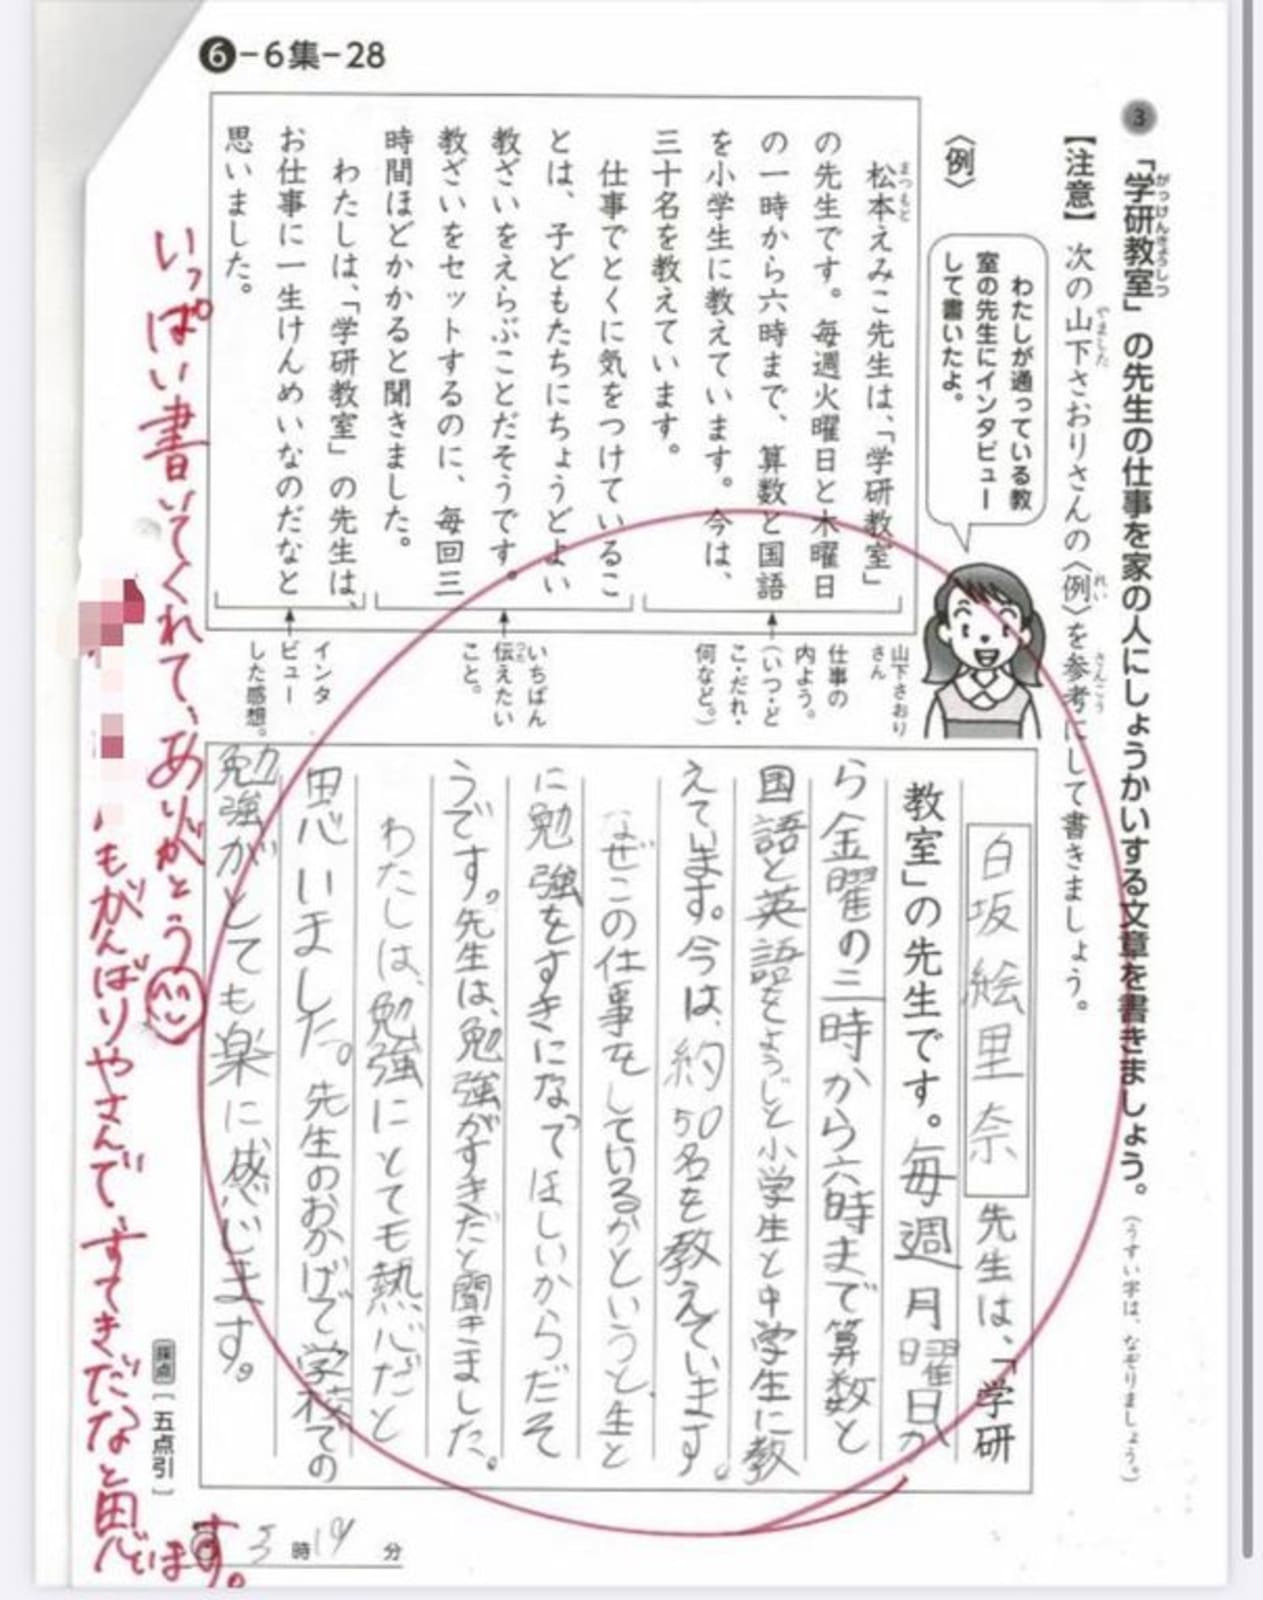 ❻-6集-28
3 「学研教室」の先生の仕事を家の人にしょうかいする文章を書きましょう。
がっけんきょうしつ
(うすい字は、なぞりましょう。)
【注意】 次の山下さおりさんの〈例〉を参考にして書きましょう。
やました
れい
さんこう
わたしが通っている教
室の先生にインタビュー
して書いたよ。
〈例〉
松本えみこ先生は、「学研教室」
まつもと
の先生です。毎週火曜日と木曜日
の一時から六時まで、算数と国語
を小学生に教えています。今は、
三十名を教えています。
仕事でとくに気をつけているこ
とは、子どもたちにちょうどよい
教ざいをえらぶことだそうです。
教ざいをセットするのに、毎回三
時間ほどかかると聞きました。
わたしは、「学研教室」の先生は、
お仕事に一生けんめいなのだなと
思いました。
山下さおり
さん
仕事の
内よう。
(いつ・ど
こ・だれ・
何など。)
いちばん
伝えたい
つた
こと。
インタ
ビュー
した感想。
白坂絵里奈先生は、「学研
教室」の先生です。毎週月曜日か
ら金曜の三時から六時まで算数と
国語と英語をようじと小学生と中学生に教
えています。今は、約50名を教えています。
なぜこの仕事をしているかというと、生と
に勉強をすきになってほしいからだそ
うです。先生は、勉強がすきだと聞きました。
わたしは、勉強にとても熱心だと
思いました。先生のおかげで学校での
勉強がとても楽に感じます。
採点 [五点引]
5時19分
いっぱい書いてくれて、ありがとう
もがんばりやさんで、すてきだなと思います。